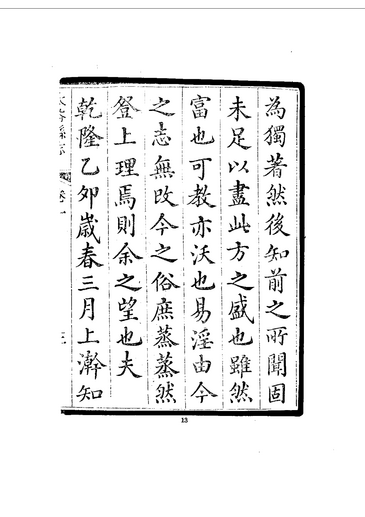 為獨著然後知前之所聞固
未足以盡此方之盛也雖然
富也可教亦沃也易淫由今
之志無改今之俗庶蒸蒸然
登上理焉則余之望也夫
乾隆乙卯歲春三月上澣知
卷一
三
13